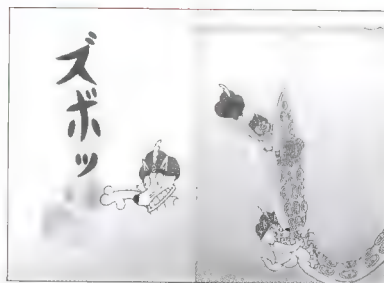 ズボッ